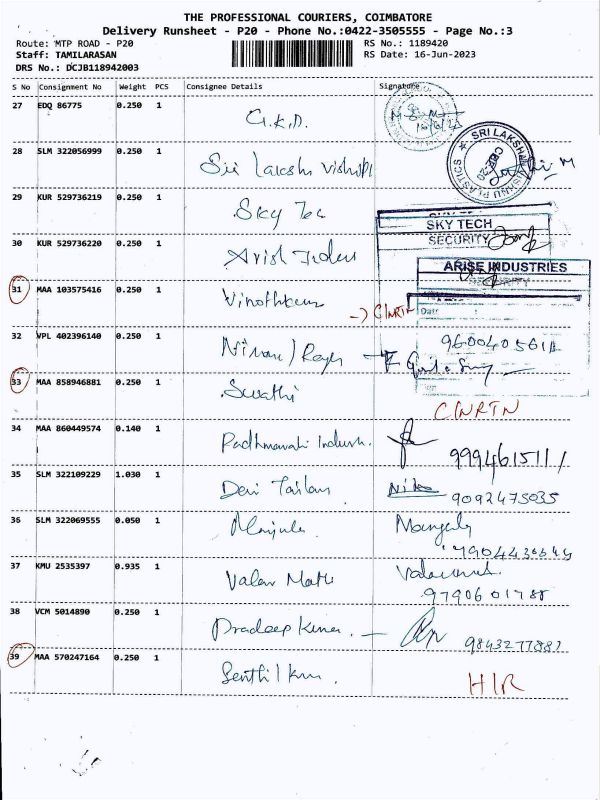 THE PROFESSIONAL COURIERS, COIMBATORE
Delivery Runsheet - P20 - Phone No.:0422-3505555 - Page No.:3
Route: MTP ROAD - P20 RS No.: 1189420
Staff: TAMILARASAN RS Date: 16-Jun-2023
DRS No.: DCJB118942003
S No Consignment No Weight PCS Consignee Details Signature
27 EDQ 86775 0.250 1 G.K.D.
28 SLM 322056999 0.250 1 Sri Lakshi
SRI LAKSHMI
PLASTICS
29 KUR 529736219 0.250 1 Sky Tec
SKY TECH
SECURITY
30 KUR 529736220 0.250 1
ARISE INDUSTRIES
SECURITY
31 MAA 103575416 0.250 1 Vinothkum
→ C/NRTN
Date:
32 VPL 402396140 0.250 1 Niran / 
33 MAA 858946881 0.250 1 Swathi
C/NRTN
34 MAA 860449574 0.140 1 Padmavathi Industr.
9994615111
35 SLM 322109229 1.030 1 Devi Tailors
9092475035
36 SLM 322069555 0.050 1 Manjula
37 KMU 2535397 0.935 1 Valar Math
9790601788
38 VCM 5014890 0.250 1 Pradeep Kumar. —
39 MAA 570247164 0.250 1 Senthilkum
H/R